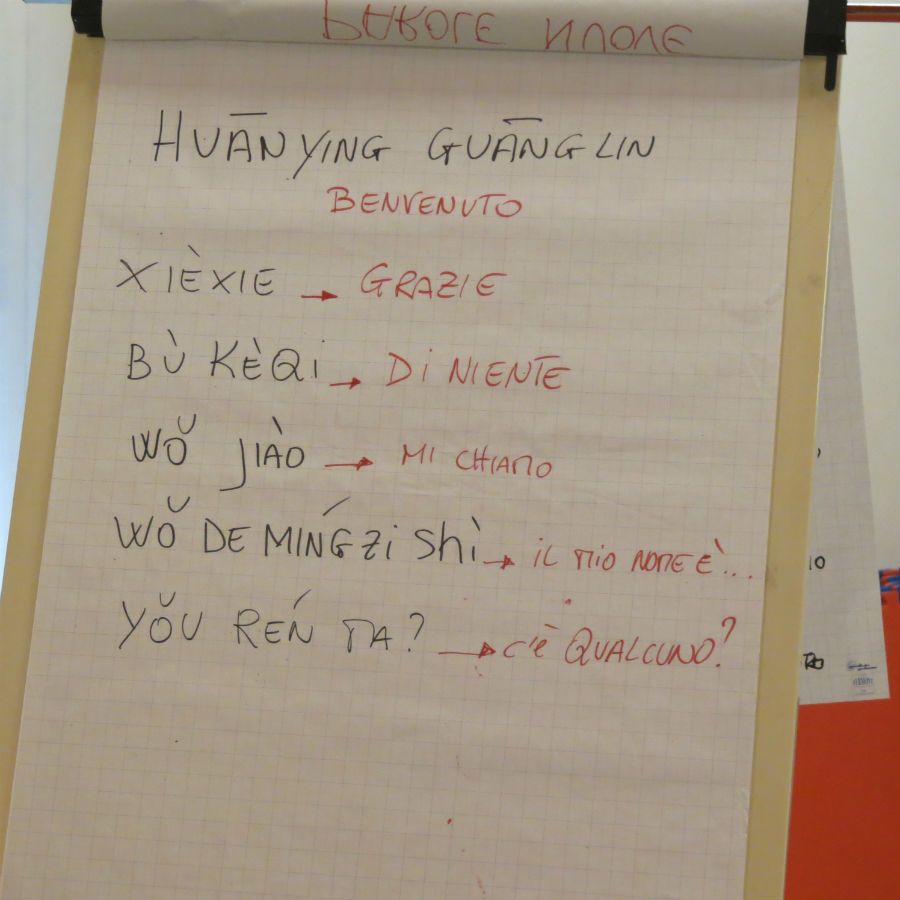 PAROLE NUOVE
HUĀNYING GUĀNGLIN
BENVENUTO
XIÈXIE → GRAZIE
BÙ KÈQI → Di NIENTE
WŎ JIÀO → MI CHIAMO
WŎ DE MÍNGZi Shì → iL MIO NOME È...
YŎU RÉN MA? → C'È QUALCUNO?